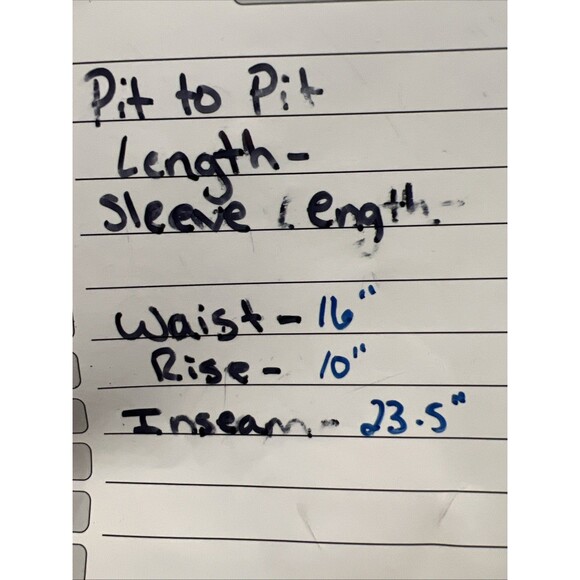 Pit to Pit
Length-
Sleeve Length-
Waist- 16"
Rise- 10"
Inseam- 23.5"